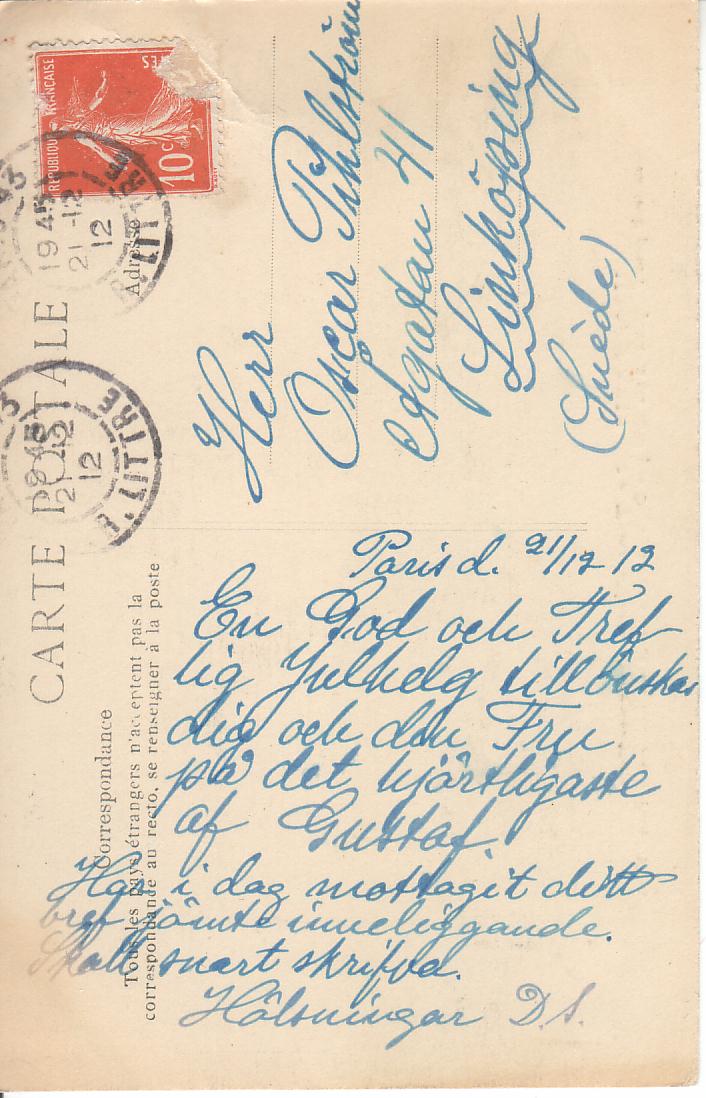 RÉPUBLIQUE FRANÇAISE
10 c
CARTE POSTALE
R. LITTRE
19 45
21 -12
12
R. LITTRE
19 45
21 -12
12
Correspondance
Tous les pays étrangers n'acceptent pas la
correspondance au recto, se renseigner à la poste
Adresse
Herr
Oscar Pihlström
Ågatan 41
Linköping
(Suède)
Paris d. 21/12 12
En God och Tref
lig Julhelg tillönskas
dig och din Fru
på det hjärtligaste
af Gustaf.
Har i dag mottagit ditt
bref jämte inneliggande.
Skall snart skrifva.
Hälsningar D.S.